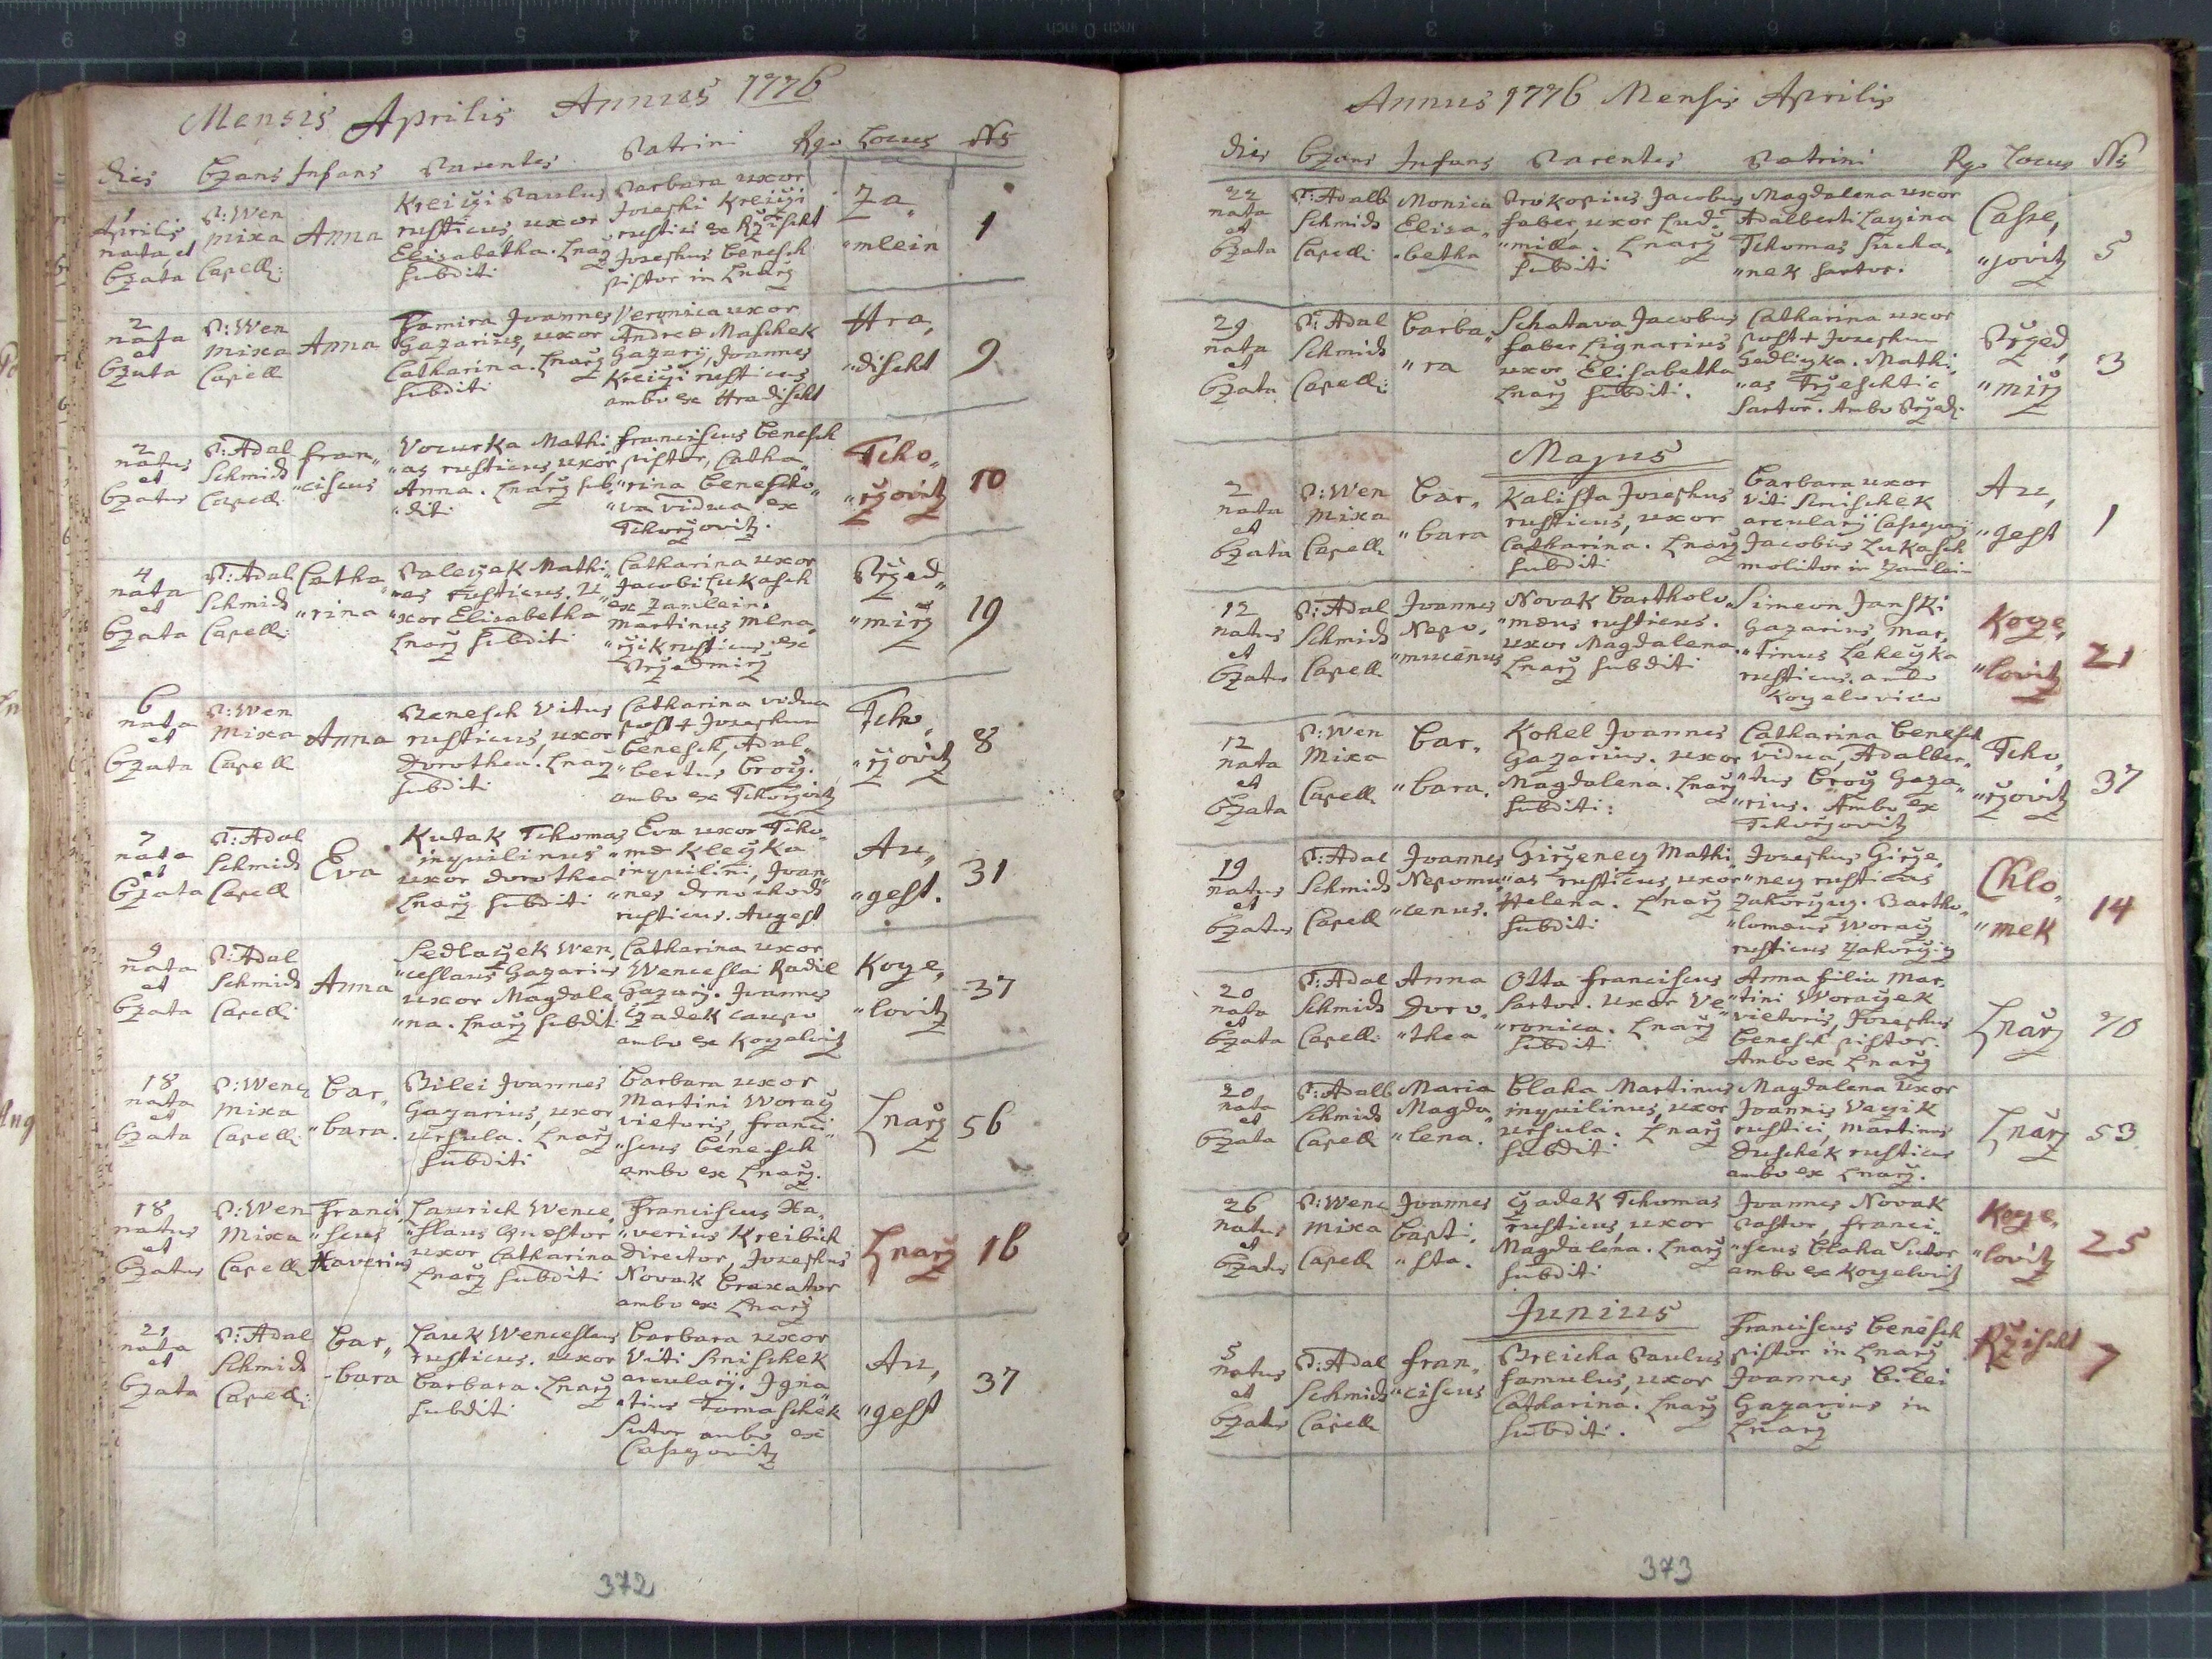 Mensis Aprilis Annus 1776
dies Bzans Infans Parentes Patrini Rgo Locus No
1 Aprilis nata et Bzata
P: Wen Mixa Capell:
Anna
Kreiczi Paulus
rusticus, uxor
Elisabetha. Lnarz
Subditi
Barbara uxor
Josephi Kreiczi
rustici ex Rzischt
Josephus Benesch
pistor in Lnarz
Za,
"mlein
1
2 nata et Bzata
P: Wen Mixa Capell
Anna
Joannes
Gazarius, uxor
Catharina. Lnarz
Subditi
Veronica uxor
Andreæ Maschek
Gazarij, Joannes
Kreiczi rusticus
ambo ex Hradischt
Hra,
"discht
9
2 natus et Bzatus
P: Adal Schmid Capell:
Fran,
"ciscus
Vocurka Mathi
"as rusticus, uxor
Anna. Lnarz sub,
"diti
Franciscus Benesch
pistor, Catha
"rina Benescho,
"va vidua ex
Tchorzovitz.
Tcho,
"rzovitz
10
4 nata et Bzata
P: Adal Schmid Capell:
Catha,
"rina
Paleczek Mathi
"as rusticus. U
"xor Elisabetha
Lnarz Subditi
Catharina uxor
Jacobi Lukasch
ex Zamlein.
Martinus Mlna,
"rzik rusticus, ex
Przedmirz
Przed,
"mirz
19
6 nata et Bzata
P: Wen Mixa Capell
Anna
Benesch Vitus
rusticus, uxor
Dorothea. Lnarz
subditi
Catharina vidua
post + Josephum
Benesch, Adal,
"bertus Brocz.
ambo ex Tchorzovitz
Tcho,
"rzovitz
8
7 nata et Bzata
P: Adal Schmid Capell
Eva
Kutak Thomas
inquilinus
uxor Dorothea
Lnarz Subditi
Eva uxor Tho,
"mæ Kleczka
inquilini, Joan
"nes
rusticus. Augest
Au,
"gest.
31
9 nata et Bzata
P: Adal Schmid Capell:
Anna
Sedlaczek Wen,
"ceslaus Gazarius
uxor Magdale,
"na. Lnarz Subdit:
Catharina uxor
Wenceslai Radil
Gazarij. Joannes
Czadek caupo
ambo ex Kozalovitz
Koze,
"lovitz
37
18 nata et Bzata
P: Wenc Mixa Capell:
Bar,
"bara.
Bilei Joannes
Gazarius, uxor
Ursula. Lnarz
Subditi
Barbara uxor
Martini Woracz
vietoris, Franci
"scus Benesch
ambo ex Lnarz.
Lnarz
56
18 natus et Bzatus
P: Wen Mixa Capell:
Franci,
"scus
Xaverius
Laurich Wence,
"slaus Quæstor
uxor Catharina
Lnarz Subditi
Franciscus Xa,
"verius Kreibich
Director, Josephus
Novak Braxator
ambo ex Lnarz
Lnarz
16
21 nata et Bzata
P: Adal Schmid Capell:
Bar,
"bara
Lauk Wenceslaus
rusticus. uxor
Barbara. Lnarz
subditi
Barbara uxor
Viti Knischek
arcularij. Igna
"tius Tomaschek
Sutor ambo ex
Cassegovitz
Au,
"gest
37
372
Annus 1776 Mensis Aprilis
dies Bzans Infans Parentes Patrini Rgo Locus No
22 nata et Bzata
P: Adalb Schmid Capell:
Monica
Elisa,
"betha
Prokopius Jacobus
faber, uxor Lud,
"milla. Lnarz
Subditi
Magdalena uxor
Adalberti Lagina
Thomas Sucha,
"nek sartor.
Casse,
"jovitz
5
29 nata et Bzata
P: Adal Schmid Capell:
Barba,
"ra
Schatava Jacobus
faber Lignarius
uxor Elisabetha
Lnarz Subditi.
Catharina uxor
post + Josephum
Hadliczka. Mathi,
"as Trzeschtic
Sartor. Ambo Przed:
Przed,
"mirz
3
Majus
2 nata et Bzata
P: Wen Mixa Capell:
Bar,
"bara
Kalista Josephus
rusticus, uxor
Catharina. Lnarz
Subditi
Barbara uxor
Viti Knischek
arcularij
Jacobus Lukasch
molitor in Zamlein
Au,
"gest
1
12 natus et Bzatus
P: Adal Schmid Capell
Joannes
Nepo,
"mucenus
Novak Bartholo,
"mæus rusticus.
uxor Magdalena.
Lnarz Subditi
Simeon Janski
Gazarius, Mar,
"tinus Leheczka
rusticus. ambo
Kozelovicio
Koze,
"lovitz
21
12 nata et Bzata
P: Wen Mixa Capell
Bar,
"bara.
Kohel Joannes
Gazarius. uxor
Magdalena. Lnarz
Subditi:
Catharina Benesch
vidua, Adalber,
"tus Brocz Gaza,
"rius. Ambo ex
Tchorzovitz
Tcho,
"rzovitz
37
19 natus et Bzatus
P: Adal Schmid Capell
Joannes
Nepomu
"cenus.
Girzeney Mathi
"as rusticus, uxor
Helena. Lnarz
Subditi
Josephus Girze,
"ney rusticus
Zahorziczy. Bartho,
"lomæus Woracz
rusticus Zahorziczy
Chlo,
"mek
14
20 nata et Bzata
P: Adal Schmid Capell:
Anna
Doro,
"thea
Otta Franciscus
sartor. uxor Ve
"ronica. Lnarz
Subditi
Anna filia Mar,
"tini Woraczek
vietoris, Josephus
Benesch pistor.
Ambo ex Lnarz
Lnarz
70
20 nata et Bzata
P: Adalb Schmid Capell
Maria
Magda,
"lena.
Blaha Martinus
inquilinus, uxor
Ursula. Lnarz
Subditi
Magdalena uxor
Joannis Vazik
rustici, Martinus
Duschek rusticus
ambo ex Lnarz.
Lnarz
53
26 natus et Bzatus
P: Wenc Mixa Capell
Joannes
Bapti,
"sta.
Czadek Thomas
rusticus, uxor
Magdalena. Lnarz
Subditi
Joannes Novak
Pastor, Franci
"scus Blaha Sutor
ambo ex Kozelovitz
Koze,
"lovitz
25
Junius
5 natus et Bzatus
P: Adal Schmid Capell
Fran,
"ciscus
Breicha Paulus
famulus, uxor
Catharina. Lnarz
Subditi.
Franciscus Benesch
pistor in Lnarz
Joannes Bilei
Gazarius in
Lnarz
Rzischt
7
373